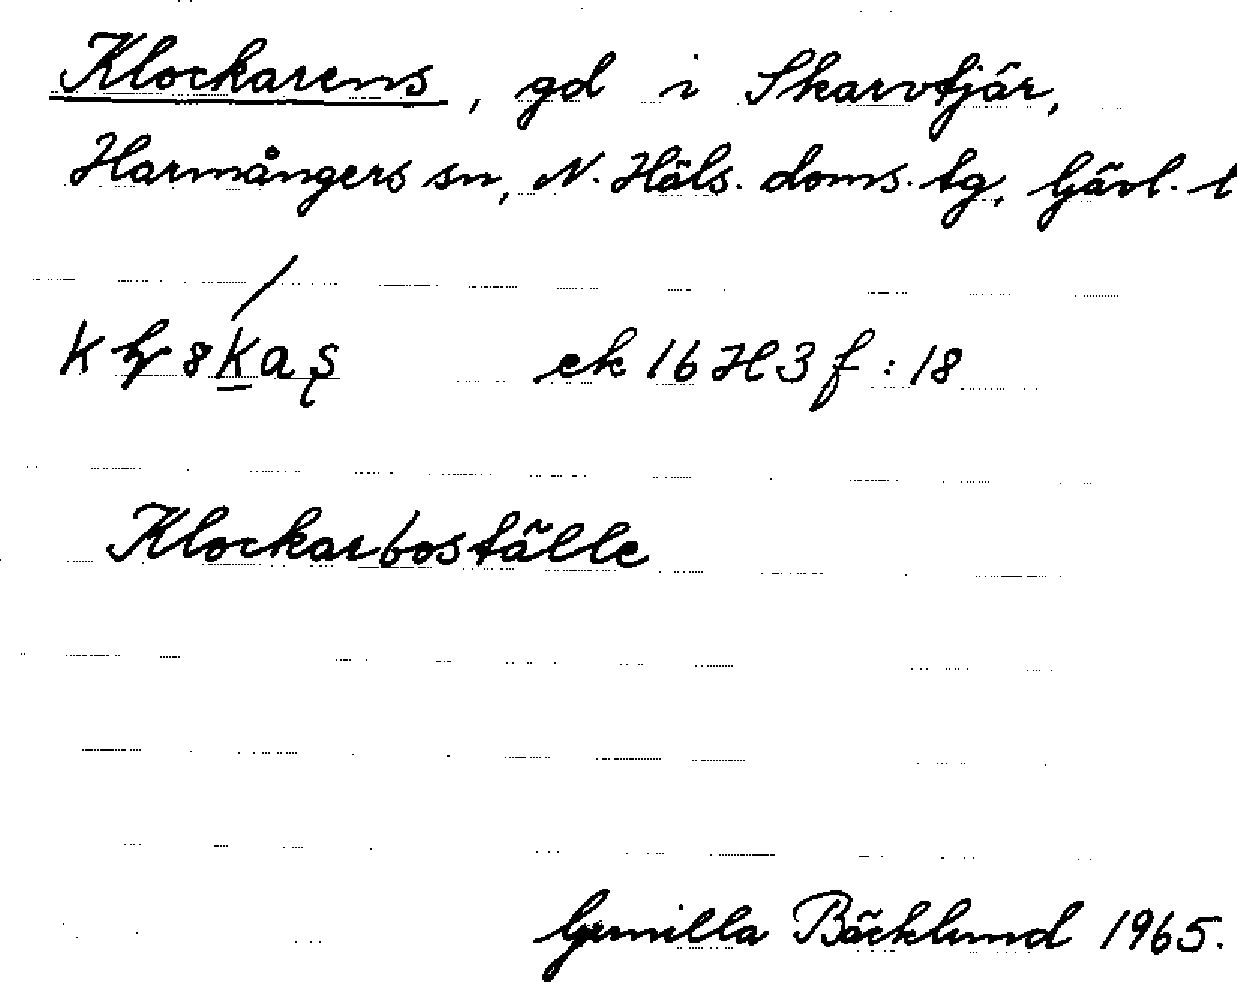 Klockarens, gd i Skarvtjär,
Harmångers sn, N. Häls. doms. tg, Gävl. l
ek 16H3f:18
Klockarboställe
Gunilla Bäcklund 1965.